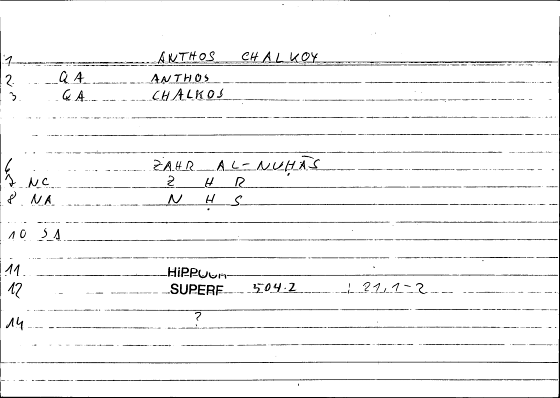 1 ANTHOS CHALKOY
2 QA ANTHOS
3 QA CHALKOS
6 ZAHR AL-NUḤĀS
7 NC Z H R
8 NA N Ḥ S
10 SA
11 HIPPOCR
12 SUPERF 504.2 ; 21,1-2
14 ?